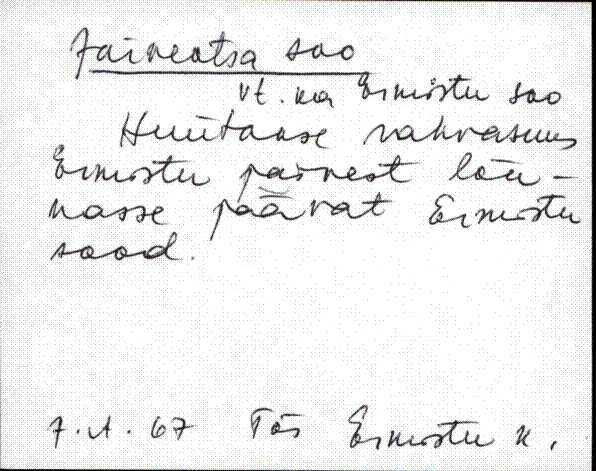 Järveotsa soo
vt. ka Ermistu soo
Hüütakse rahvasuus
Ermistu järvest lõu-
nasse jäävat Ermistu
sood.
7. A. 67 Tõs Ermistu k.